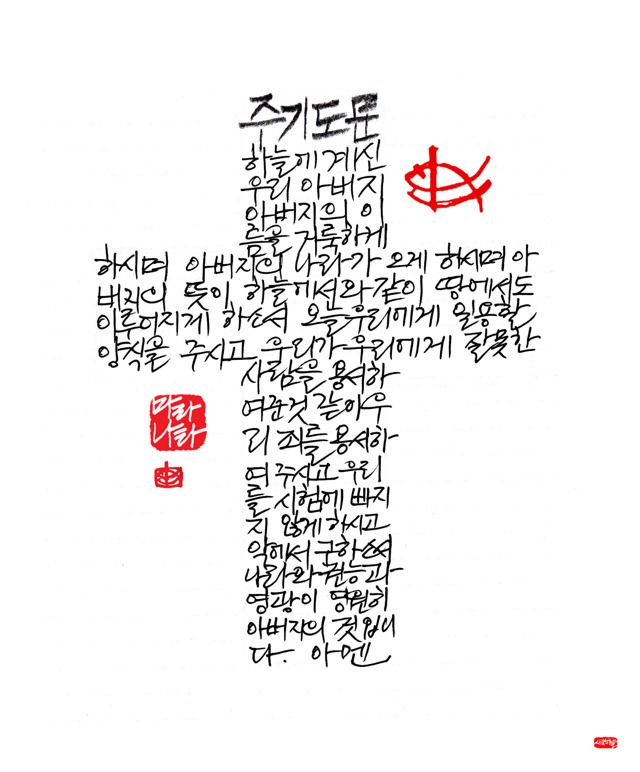 주기도문
하늘에 계신
우리 아버지
아버지의 이
름을 거룩하게
하시며 아버지의 나라가 오게 하시며 아
버지의 뜻이 하늘에서와 같이 땅에서도
이루어지게 하소서 오늘 우리에게 일용할
양식을 주시고 우리가 우리에게 잘못한
사람을 용서하
여준것 같이 우
리 죄를 용서하
여 주시고 우리
를 시험에 빠지
지 않게 하시고
악에서 구하소서
나라와 권능과
영광이 영원히
아버지의 것입니
다. 아멘
마라
나타